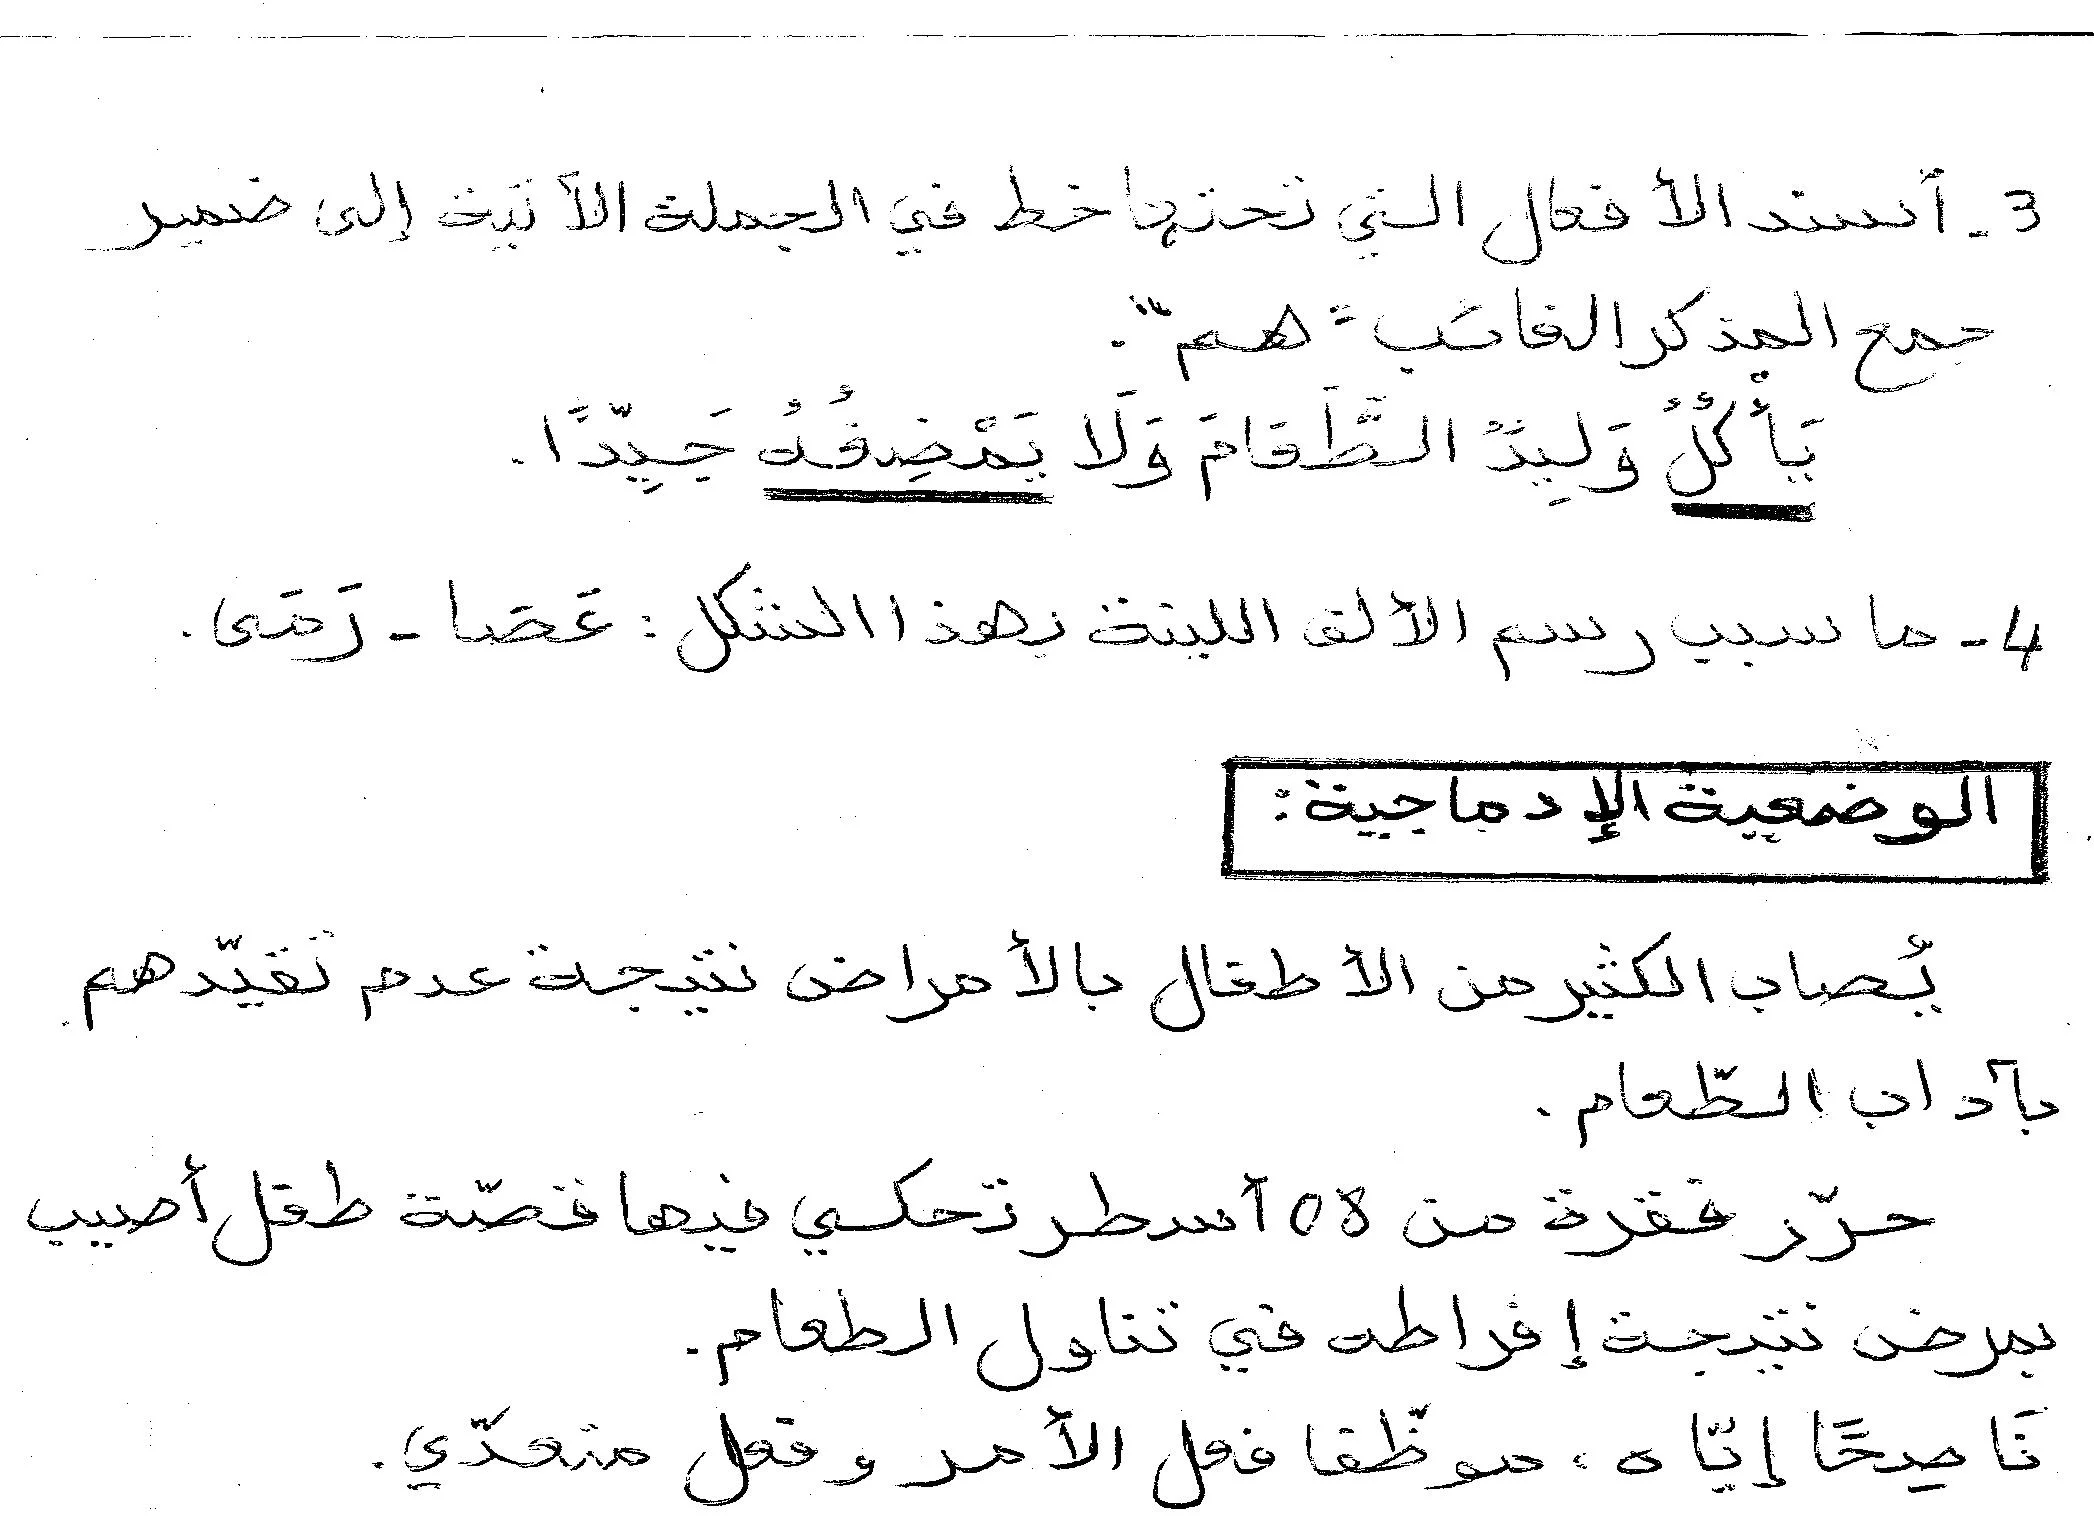 3 - أسند الأفعال التي تحتها خط في الجملة الآتية إلى ضمير
جمع المذكر الغائب "هم".
يَأْكُلُ وَلِيدٌ الطَّعَامَ وَلَا يَمْضِغُهُ جَيِّدًا.
4 - ما سبب رسم الألف اللينة بهذا الشكل: عَصَا - رَمَى.
الوضعية الإدماجية:
يُصاب الكثير من الأطفال بالأمراض نتيجة عدم تقيّدهم
بآداب الطّعام.
حرّر فقرة من 08 أسطر تحكي فيها قصّة طفل أصيب
بمرض نتيجة إفراطه في تناول الطعام.
نَاصِحًا إيّاه، موظّفا فعل الأمر وفعل متعدّي.